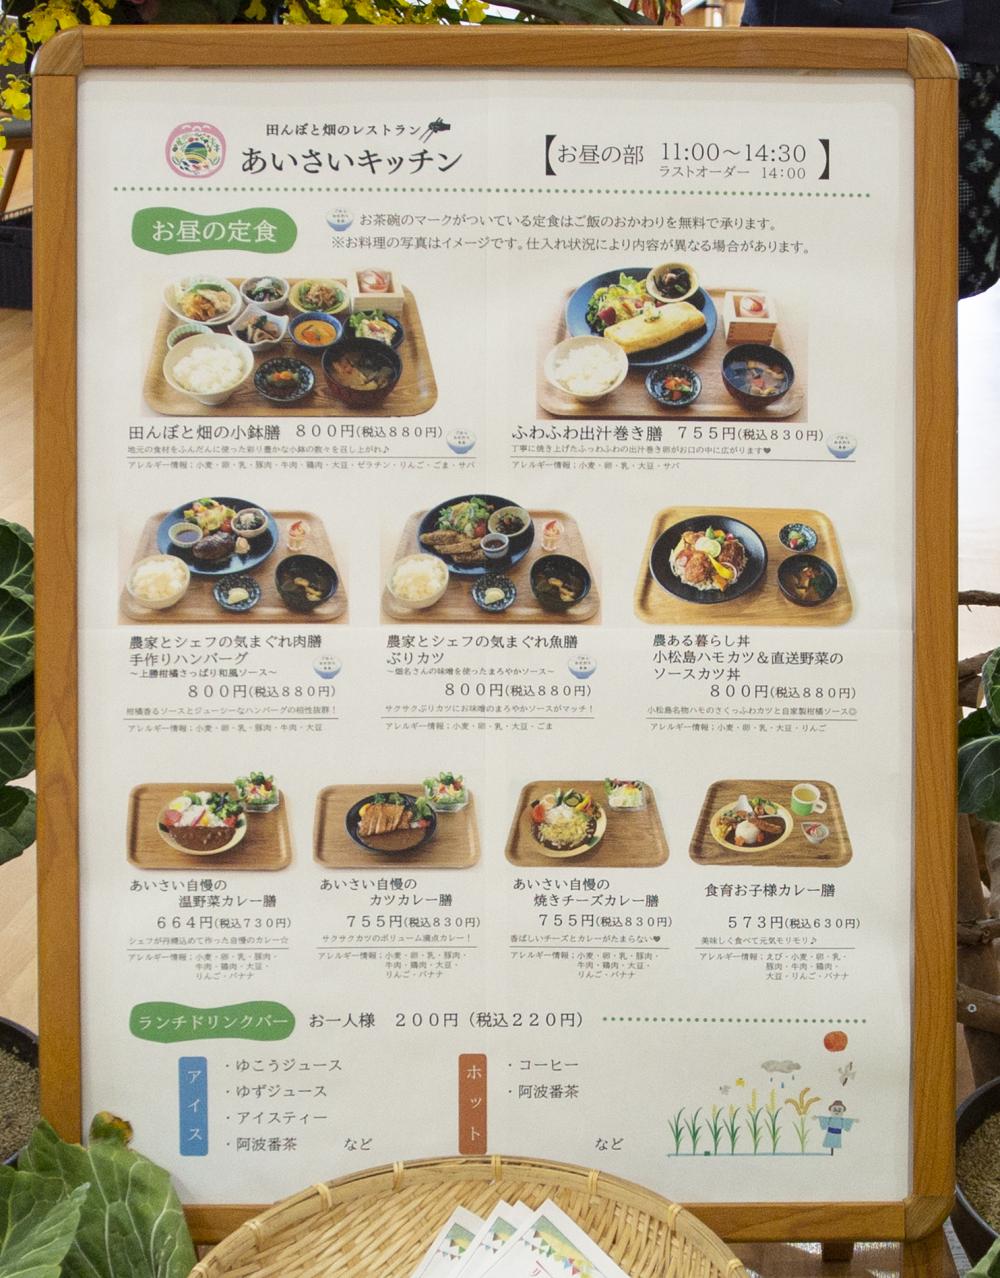 田んぼと畑のレストラン
あいさいキッチン
【お昼の部 11:00～14:30
ラストオーダー 14:00】
お昼の定食
お茶碗のマークがついている定食はご飯のおかわりを無料で承ります。
※お料理の写真はイメージです。仕入れ状況により内容が異なる場合があります。
田んぼと畑の小鉢膳 800円(税込880円)
地元の食材をふんだんに使った彩り豊かな小鉢の数々を召し上がれ♪
アレルギー情報；小麦・卵・乳・豚肉・牛肉・鶏肉・大豆・ゼラチン・りんご・ごま・サバ
ふわふわ出汁巻き膳 755円(税込830円)
丁寧に焼き上げたふっわふわの出汁巻き卵がお口の中に広がります♥
アレルギー情報；小麦・卵・乳・大豆・サバ
農家とシェフの気まぐれ肉膳
手作りハンバーグ
～上勝柑橘さっぱり和風ソース～
800円(税込880円)
柑橘香るソースとジューシーなハンバーグの相性抜群！
アレルギー情報；小麦・卵・乳・豚肉・牛肉・大豆
農家とシェフの気まぐれ魚膳
ぶりカツ
～畑名さんの味噌を使ったまろやかソース～
800円(税込880円)
サクサクぶりカツにお味噌のまろやかソースがマッチ！
アレルギー情報；小麦・卵・乳・大豆・ごま
農ある暮らし丼
小松島ハモカツ＆直送野菜の
ソースカツ丼
800円(税込880円)
小松島名物ハモのさくっふわカツと自家製柑橘ソース◎
アレルギー情報；小麦・卵・乳・大豆・りんご
あいさい自慢の
温野菜カレー膳
664円(税込730円)
シェフが丹精込めて作った自慢のカレー☆
アレルギー情報；小麦・卵・乳・豚肉・
牛肉・鶏肉・大豆・
りんご・バナナ
あいさい自慢の
カツカレー膳
755円(税込830円)
サクサクカツのボリューム満点カレー！
アレルギー情報；小麦・卵・乳・豚肉・
牛肉・鶏肉・大豆・
りんご・バナナ
あいさい自慢の
焼きチーズカレー膳
755円(税込830円)
香ばしいチーズとカレーがたまらない♥
アレルギー情報；小麦・卵・乳・豚肉・
牛肉・鶏肉・大豆・
りんご・バナナ
食育お子様カレー膳
573円(税込630円)
美味しく食べて元気モリモリ♪
アレルギー情報；えび・小麦・卵・乳・
豚肉・牛肉・鶏肉・
大豆・りんご・バナナ
ランチドリンクバー お一人様 200円（税込220円）
アイス
・ゆこうジュース
・ゆずジュース
・アイスティー
・阿波番茶 など
ホット
・コーヒー
・阿波番茶
など